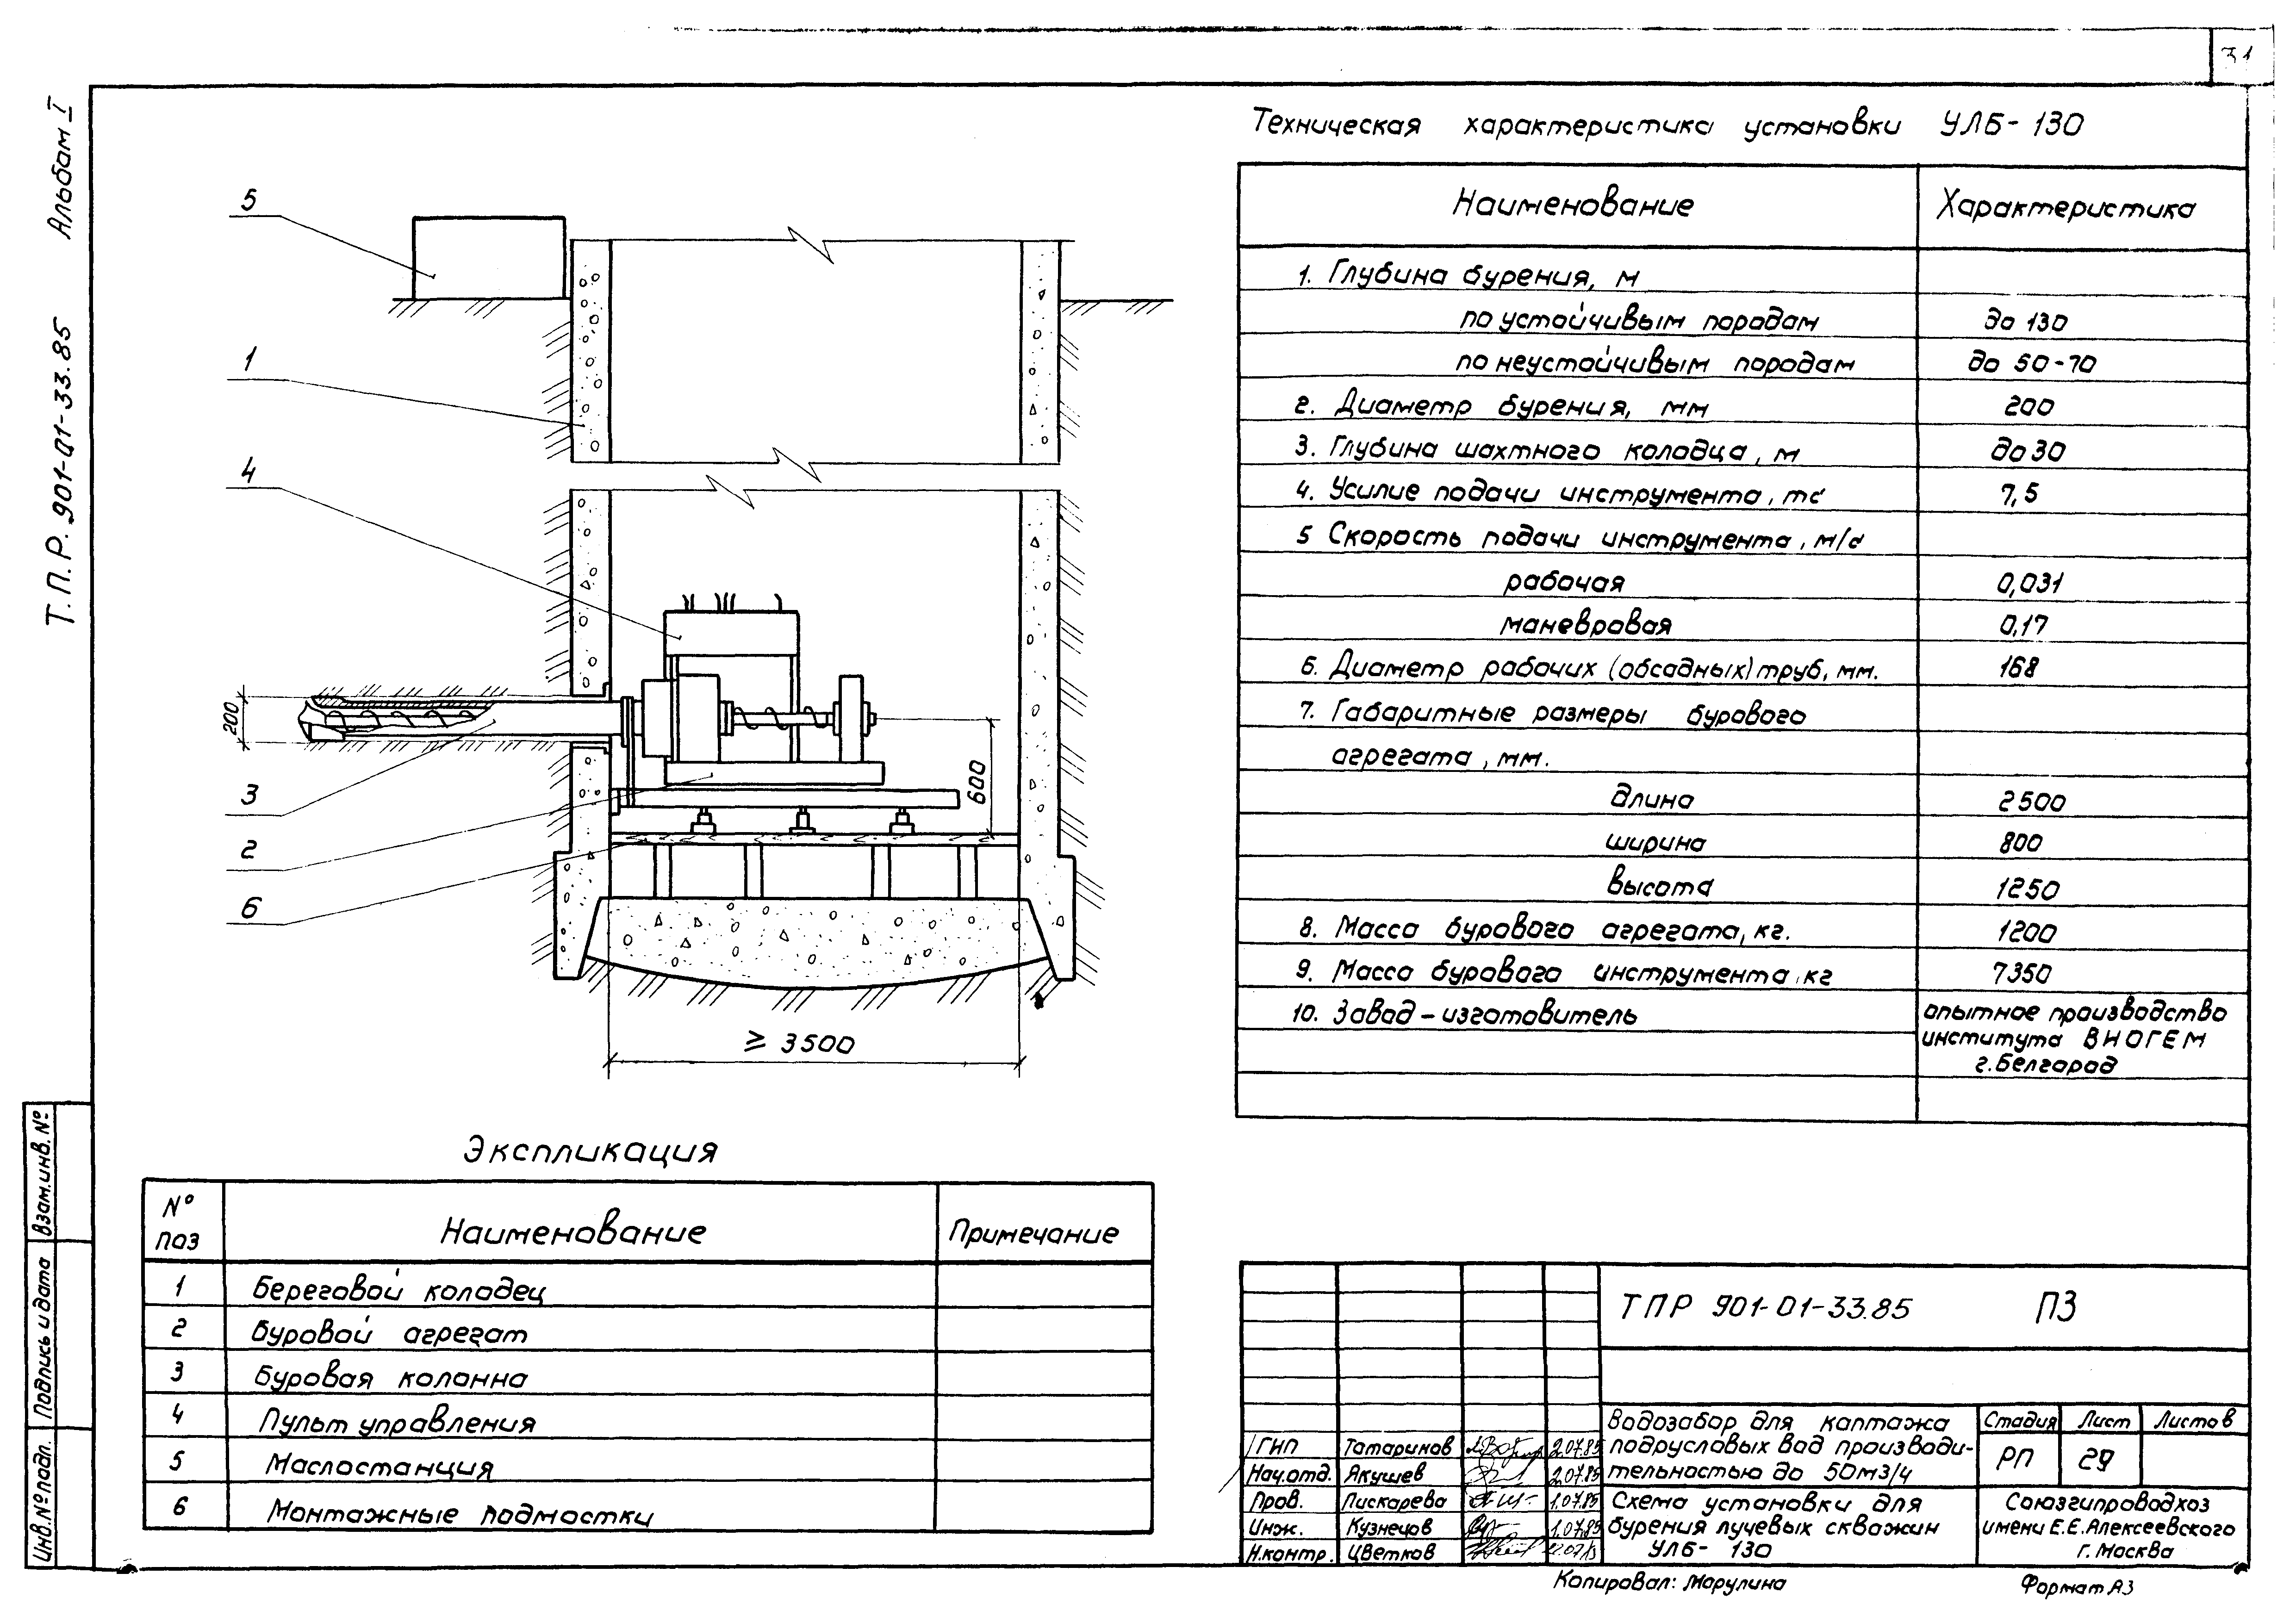 31
Альбом I
Т.П.Р. 901-01-33.85
5
1
4
3
2
6
200
600
≥ 3500
Техническая характеристика установки УЛБ-130
Наименование Характеристика
1. Глубина бурения, м
по устойчивым породам до 130
по неустойчивым породам до 50-70
2. Диаметр бурения, мм 200
3. Глубина шахтного колодца, м до 30
4. Усилие подачи инструмента, тс 7,5
5 Скорость подачи инструмента, м/с
рабочая 0,031
маневровая 0,17
6. Диаметр рабочих (обсадных) труб, мм. 168
7. Габаритные размеры бурового
агрегата, мм.
длина 2500
ширина 800
высота 1250
8. Масса бурового агрегата, кг. 1200
9. Масса бурового инструмента, кг 7350
10. Завод-изготовитель опытное производство
института ВИОГЕМ
г. Белгород
Экспликация
№ поз Наименование Примечание
1 Береговой колодец
2 Буровой агрегат
3 Буровая колонна
4 Пульт управления
5 Маслостанция
6 Монтажные подмостки
Взам.инв.№
Подпись и дата
Инв.№ подл.
ТПР 901-01-33.85 ПЗ
ГИП Татаринов 2.07.85
Нач.отд. Якушев 2.07.85
Пров. Пискарева 1.07.85
Инж. Кузнецов 1.07.85
Н.контр. Цветков
Водозабор для каптажа
подрусловых вод производи-
тельностью до 50м3/ч
Стадия Лист Листов
РП 29
Схема установки для
бурения лучевых скважин
УЛБ-130
Союзгипроводхоз
имени Е.Е.Алексеевского
г. Москва
Копировал: Марулина
Формат А3